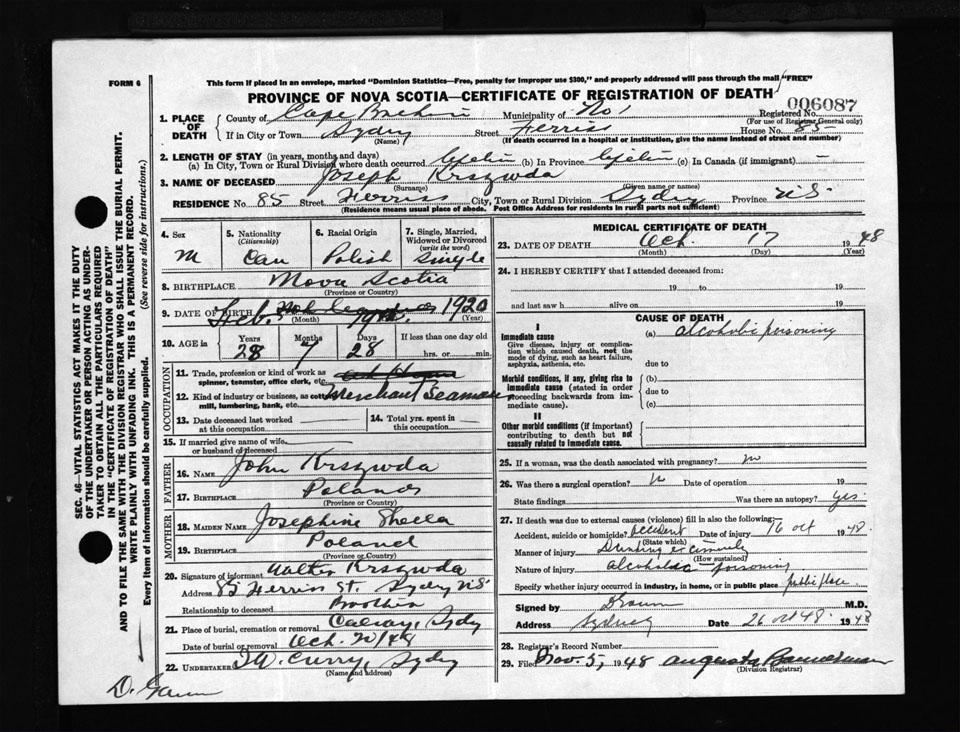 FORM 6
This form if placed in an envelope, marked "Dominion Statistics—Free, penalty for improper use $300," and properly addressed will pass through the mail "FREE"
PROVINCE OF NOVA SCOTIA—CERTIFICATE OF REGISTRATION OF DEATH
006087
1. PLACE OF DEATH
County of Cape Breton Municipality of No 1 Registered No.
(For use of Registrar General only)
If in City or Town Sydney Street Ferriss House No. 85
(Name) (If death occurred in a hospital or institution, give the name instead of street and number)
2. LENGTH OF STAY (in years, months and days)
(a) In City, Town or Rural Division where death occurred Lifetime (b) In Province Lifetime (c) In Canada (if immigrant) —
3. NAME OF DECEASED Joseph Krszwda
(Surname) (Given name or names)
RESIDENCE No. 85 Street Ferriss City, Town or Rural Division Sydney Province N.S.
(Residence means usual place of abode. Post Office Address for residents in rural parts not sufficient)
4. Sex
M
5. Nationality
(Citizenship)
Can
6. Racial Origin
Polish
7. Single, Married, Widowed or Divorced
(write the word)
Single
8. BIRTHPLACE Nova Scotia
(Province or Country)
9. DATE OF BIRTH Feb. 19th. 1920
(Month) (Year)
10. AGE in
Years Months Days If less than one day old
28 7 28 hrs. or min.
OCCUPATION
11. Trade, profession or kind of work as spinner, teamster, office clerk, etc.
12. Kind of industry or business, as cotton mill, lumbering, bank, etc. Merchant Seaman
13. Date deceased last worked at this occupation
14. Total yrs. spent in this occupation
15. If married give name of wife or husband of deceased
FATHER
16. NAME John Krszwda
17. BIRTHPLACE Poland
(Province or Country)
MOTHER
18. MAIDEN NAME Josephine
19. BIRTHPLACE Poland
(Province or Country)
20. Signature of informant Walter Krszwda
Address 85 Ferriss St. Sydney N.S.
Relationship to deceased Brother
21. Place of burial, cremation or removal Calvary, Sydney
Date of burial or removal Oct. 20/48
22. UNDERTAKER Curry, Sydney
(Name and address)
MEDICAL CERTIFICATE OF DEATH
23. DATE OF DEATH Oct. 17 1948
(Month) (Day) (Year)
24. I HEREBY CERTIFY that I attended deceased from:
19 to 19
and last saw h alive on 19
CAUSE OF DEATH
I
Immediate cause
Give disease, injury or complication which caused death, not the mode of dying, such as heart failure, asphyxia, asthenia, etc.
(a) alcoholic poisoning
due to
Morbid conditions, if any, giving rise to immediate cause (stated in order proceeding backwards from immediate cause).
(b)
due to
(c)
II
Other morbid conditions (if important) contributing to death but not causally related to immediate cause.
25. If a woman, was the death associated with pregnancy? no
26. Was there a surgical operation? No Date of operation 19
State findings Was there an autopsy? Yes.
27. If death was due to external causes (violence) fill in also the following:—
Accident, suicide or homicide? Accident Date of injury 16 Oct 1948.
(State which)
Manner of injury
(How sustained)
Nature of injury alcoholic poisoning
Specify whether injury occurred in industry, in home, or in public place public place
Signed by M.D.
Address Sydney Date 26 Oct 48. 1948
28. Registrar's Record Number
29. Filed Nov. 5, 1948 Augusta Bannerman
(Division Registrar)
SEC. 46—VITAL STATISTICS ACT MAKES IT THE DUTY OF THE UNDERTAKER OR PERSON ACTING AS UNDERTAKER TO OBTAIN ALL THE PARTICULARS REQUIRED IN THE "CERTIFICATE OF REGISTRATION OF DEATH" AND TO FILE THE SAME WITH THE DIVISION REGISTRAR WHO SHALL ISSUE THE BURIAL PERMIT.
WRITE PLAINLY WITH UNFADING INK. THIS IS A PERMANENT RECORD.
Every item of information should be carefully supplied. (See reverse side for instructions.)